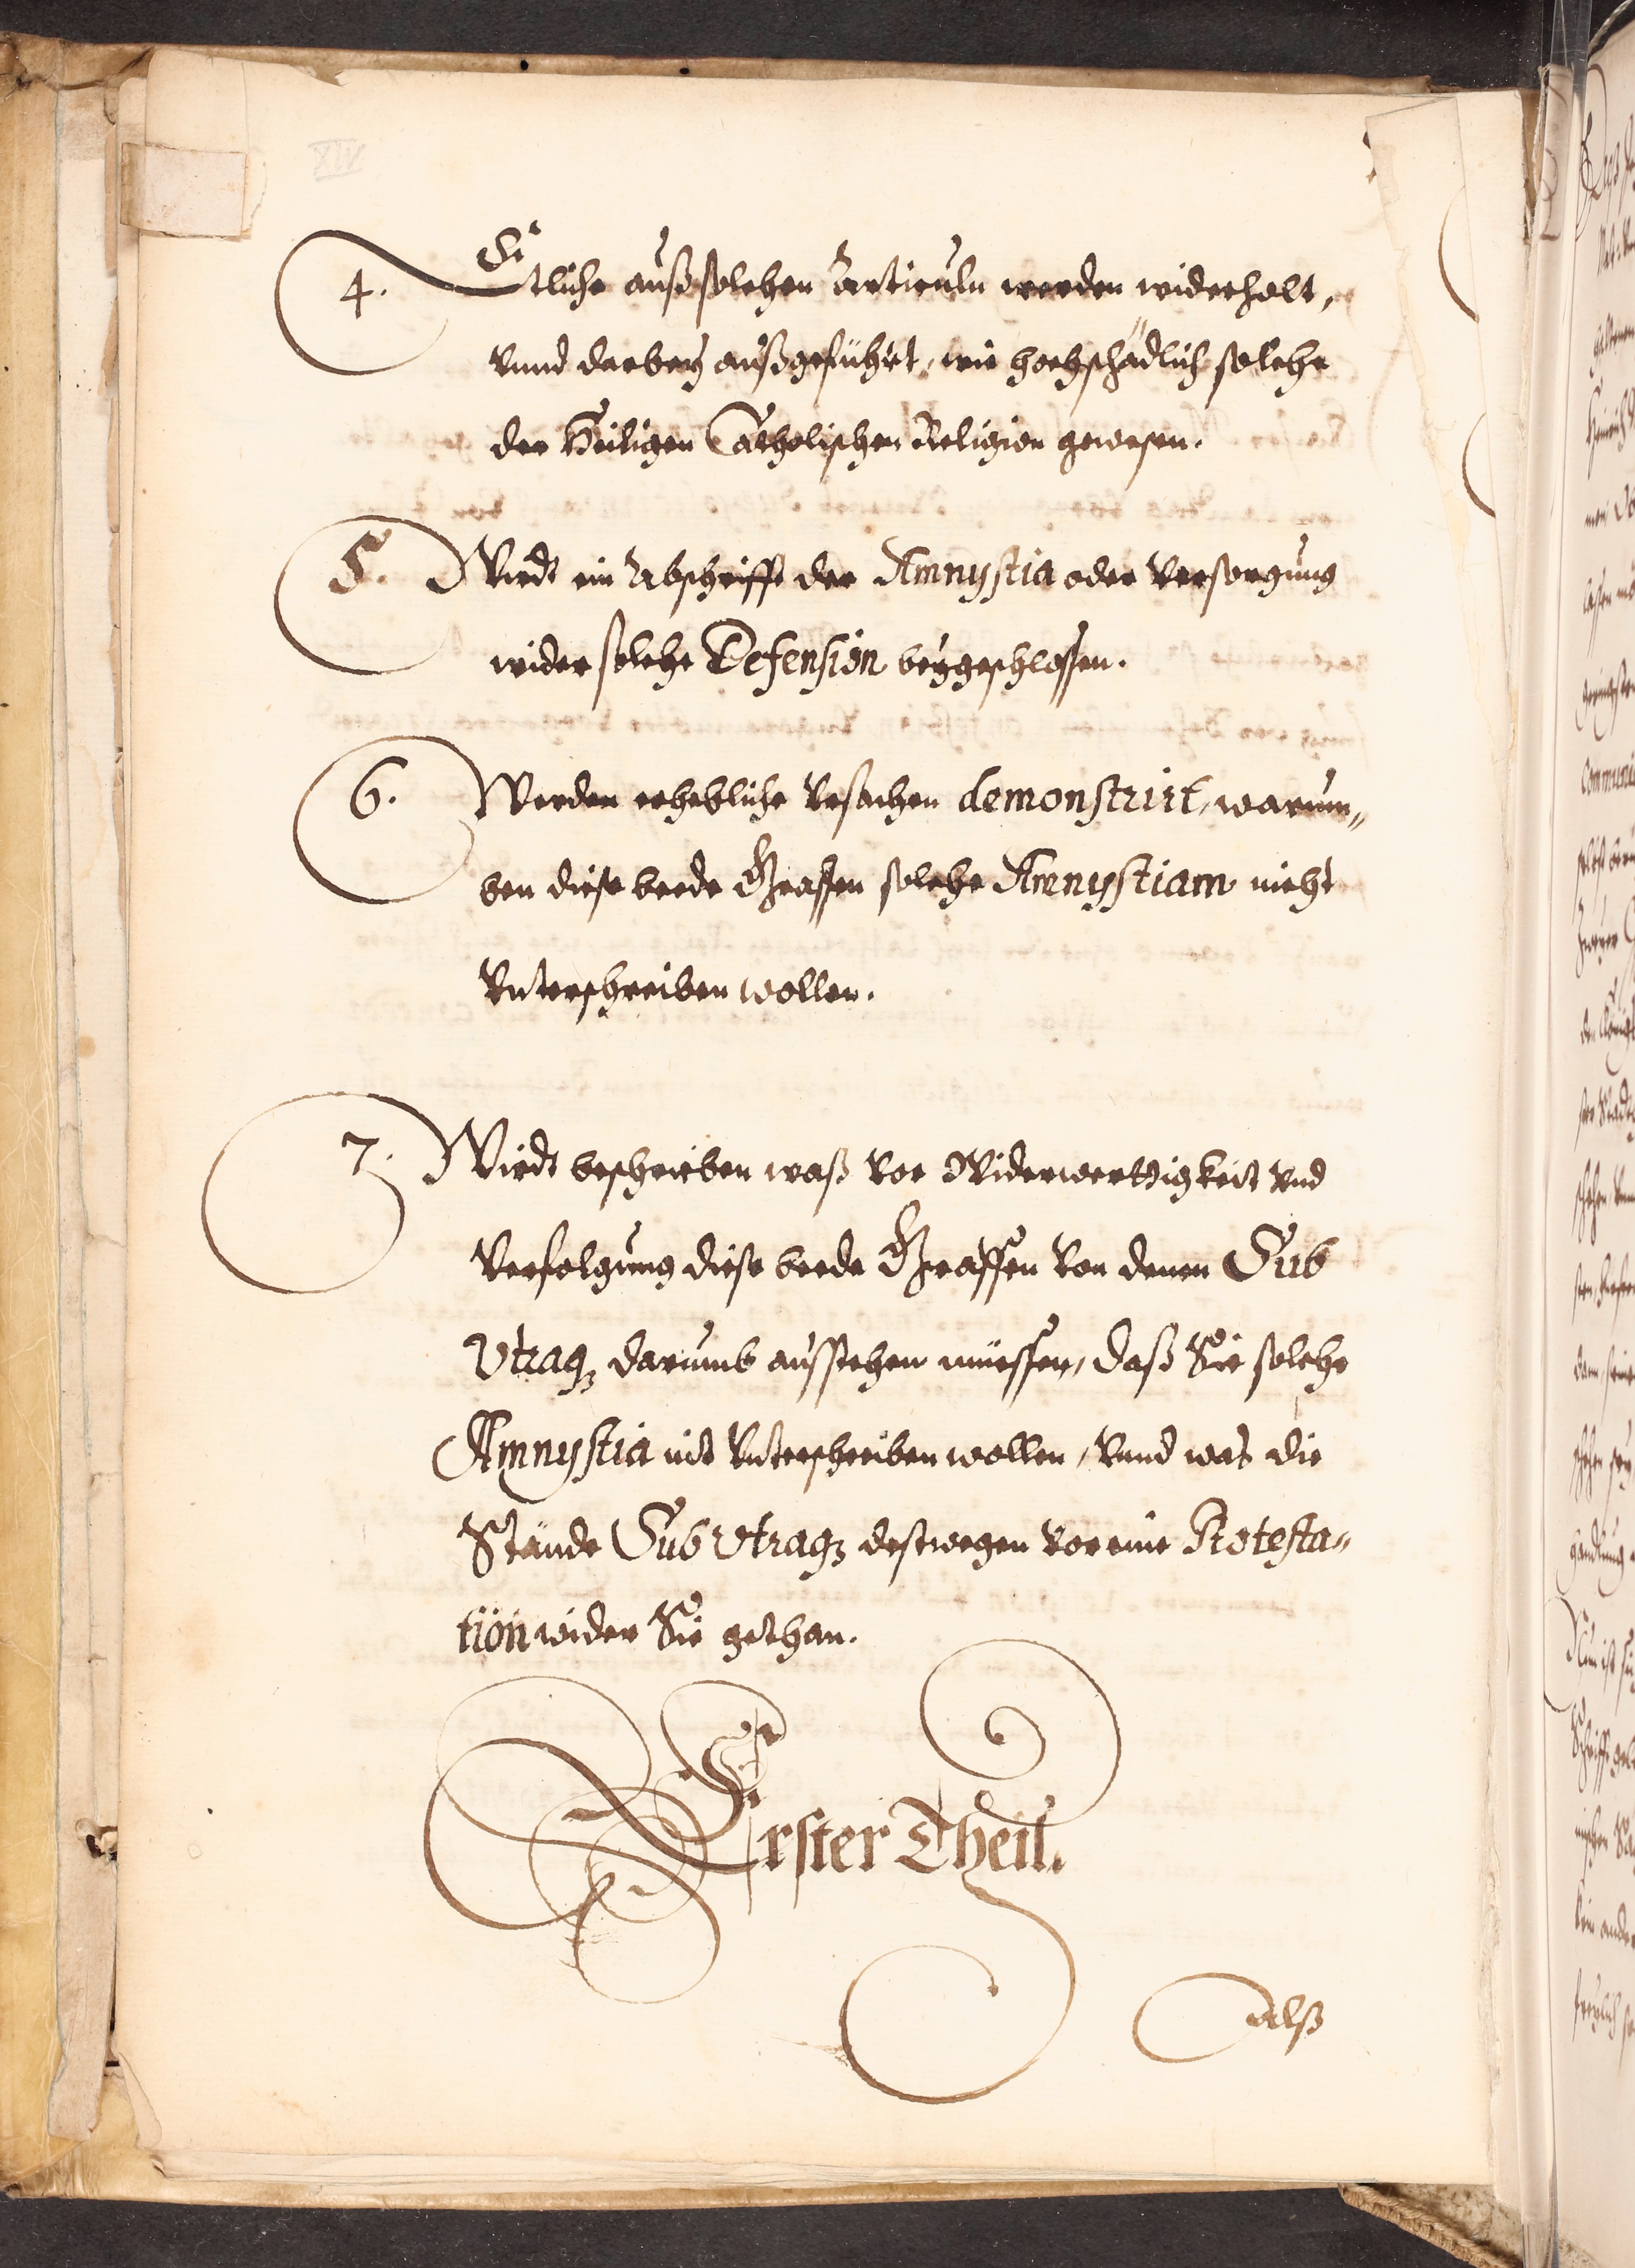 XIV
4. Etliche auß solchen Articuln werden widerholt,
Vnnd darbeÿ außgeführt, wie hochschädlich solche
der Heiligen Catholischen Religion gewesen.
5. Wirdt ein Abschrifft der Amnystia oder Versorgung
wider solche Defension beÿgeschlossen.
6. Werden erhebliche Vrsachen demonstrirt, warum„
ben diese beede Graffen solche Amnystiam nicht
Vnterschreiben wollen.
7. Wirdt beschrieben waß vor Widerwerttigkeit vnd
Verfolgung diese beede Graffen von denen Sub
Vtraqꝫ darumb ausstehen müessen, daß Sie solche
Amnystia nit Vnterschreiben wollen, Vnnd was die
Stände Sub Vtraqꝫ destwegen vor eine Protesta„
tion wider Sie gethan.
Erster Theil.
Alß